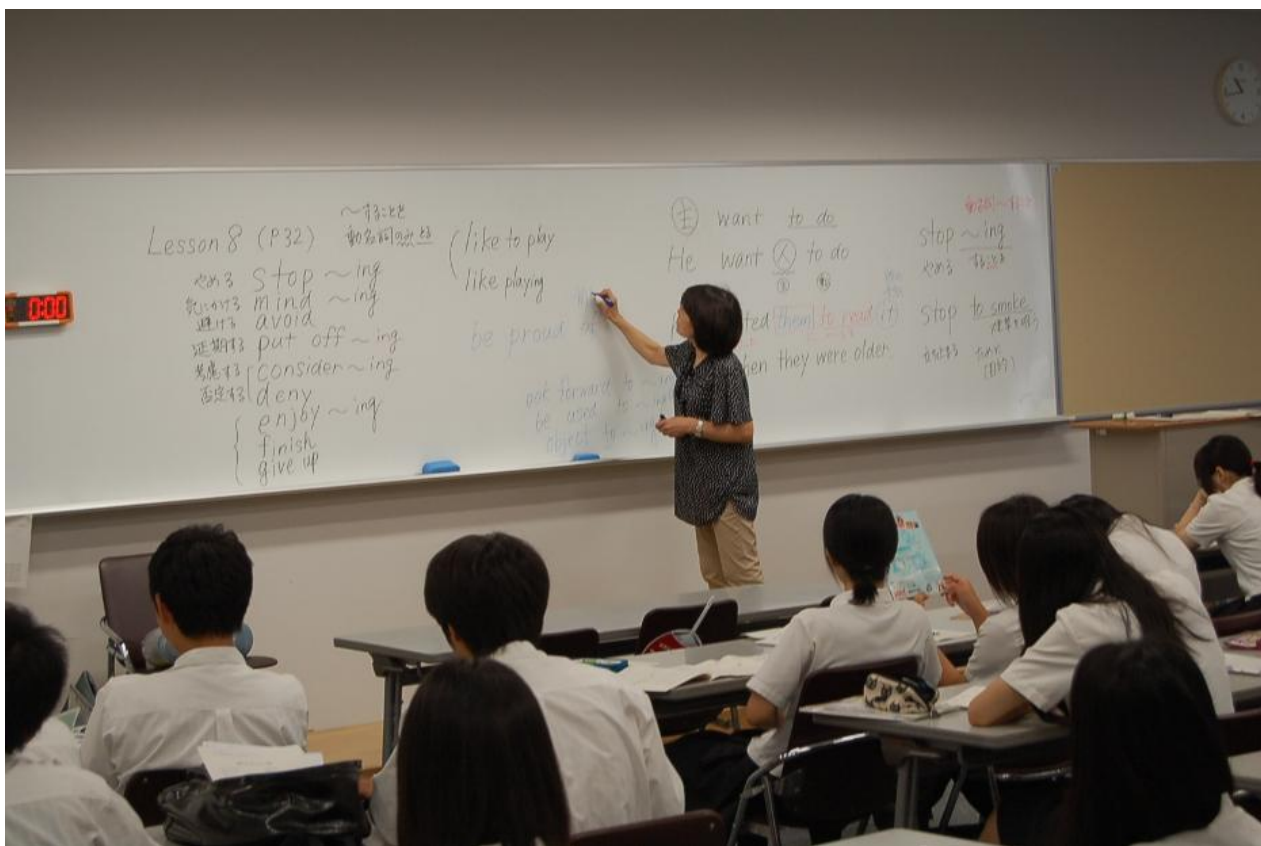 0:00
〜することを
Lesson 8 (P32) 動名詞のみとる
やめる stop 〜ing
気にかける mind 〜ing
避ける avoid
延期する put off 〜ing
考慮する consider 〜ing
否定する deny
enjoy 〜ing
finish
give up
like to play
like playing
be proud of
look forward to 〜ing
be used to 〜ing
object to 〜ing
主 want to do
He want 人 to do
ted them to read it
hen they were older.
動名詞〜すること
stop 〜ing
やめる することを
stop to smoke
立ち止まる ために